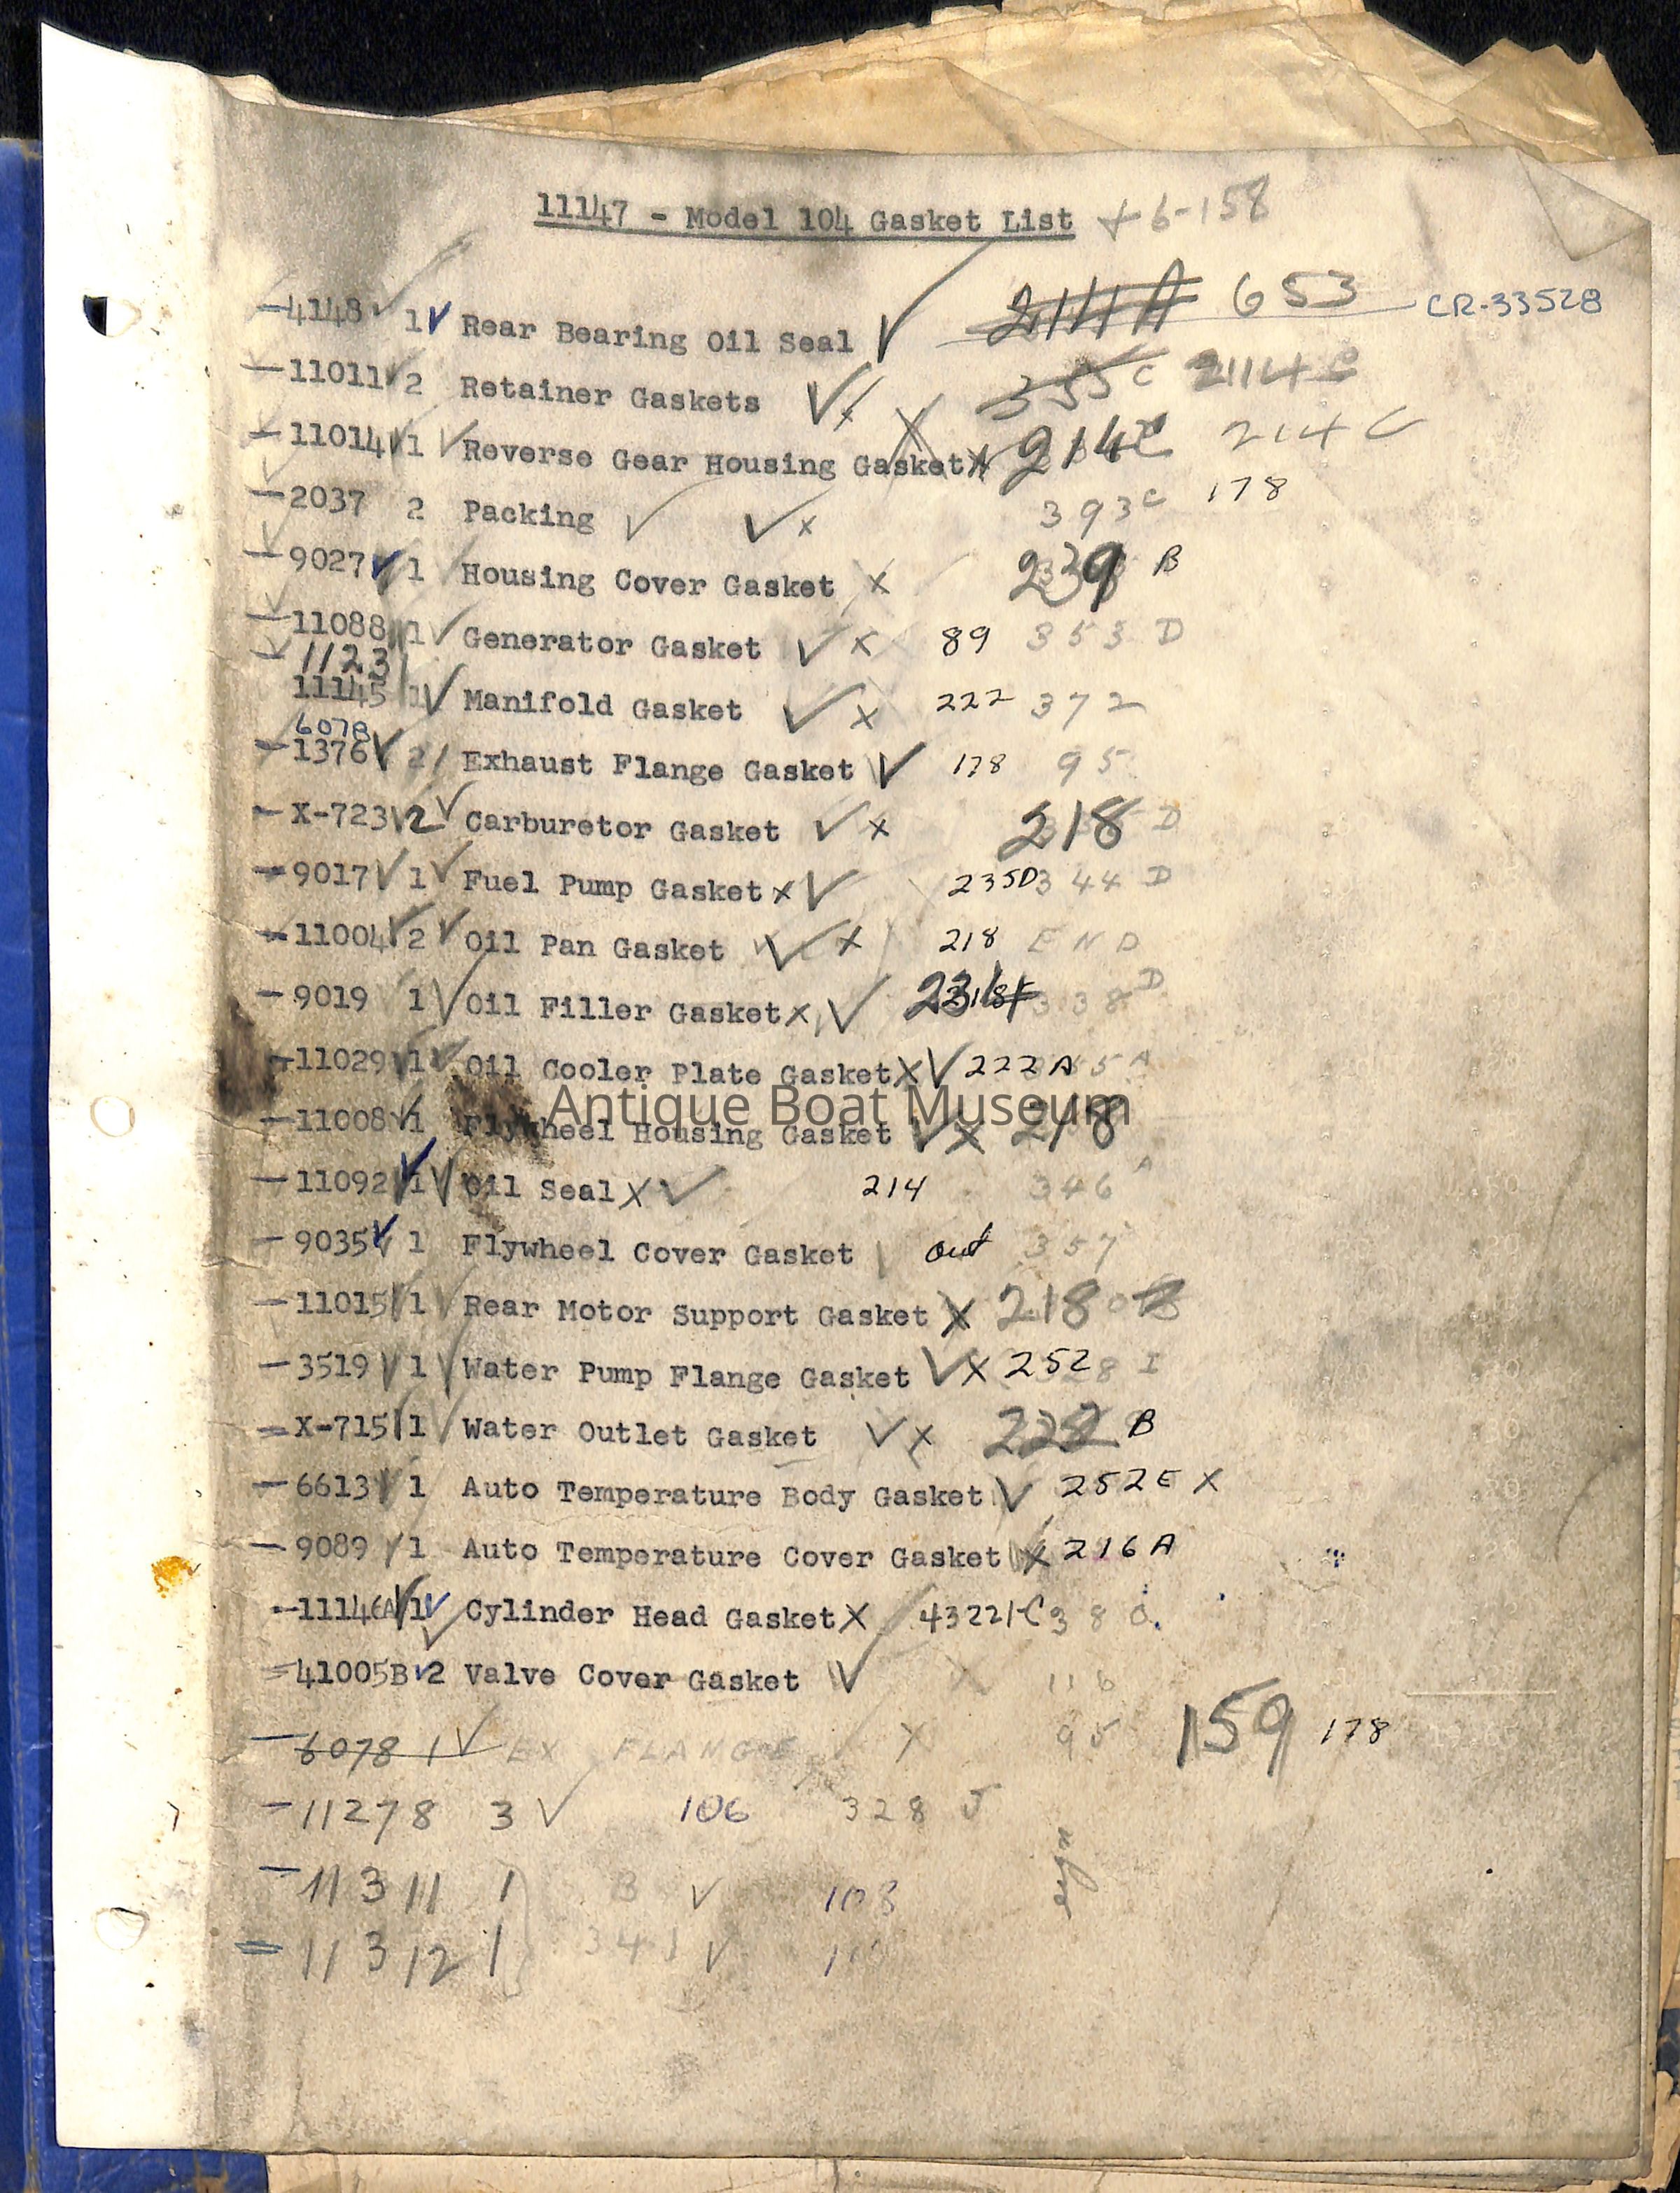 11147 - Model 104 Gasket List + 6-158
4148 1 Rear Bearing Oil Seal 214A 653 CR-33528
11011 2 Retainer Gaskets 355C 2114C
11014 1 Reverse Gear Housing Gasket 214C 214C
2037 2 Packing 393C 178
9027 1 Housing Cover Gasket 239 B
11088 1 Generator Gasket 89 353 D
1123
11145 1 Manifold Gasket 222 372
6078
1376 2 Exhaust Flange Gasket 178 95
X-723 2 Carburetor Gasket 218 D
9017 1 Fuel Pump Gasket 235D 344 D
11004 2 Oil Pan Gasket 218 END
9019 1 Oil Filler Gasket 338 D
11029 1 Oil Cooler Plate Gasket 222A
11008 1 Flywheel Housing Gasket 218
Antique Boat Museum
11092 1 Oil Seal 214 346 A
9035 1 Flywheel Cover Gasket out 357
11015 1 Rear Motor Support Gasket 218
3519 1 Water Pump Flange Gasket 252 8 I
X-715 1 Water Outlet Gasket B
6613 1 Auto Temperature Body Gasket 252E X
9089 1 Auto Temperature Cover Gasket 216A
1 Cylinder Head Gasket 380
41005B 2 Valve Cover Gasket 116
6078 1 EX FLANGE 95 159 178
11278 3 106 328 J
11311 1 B 108
11312 1 341